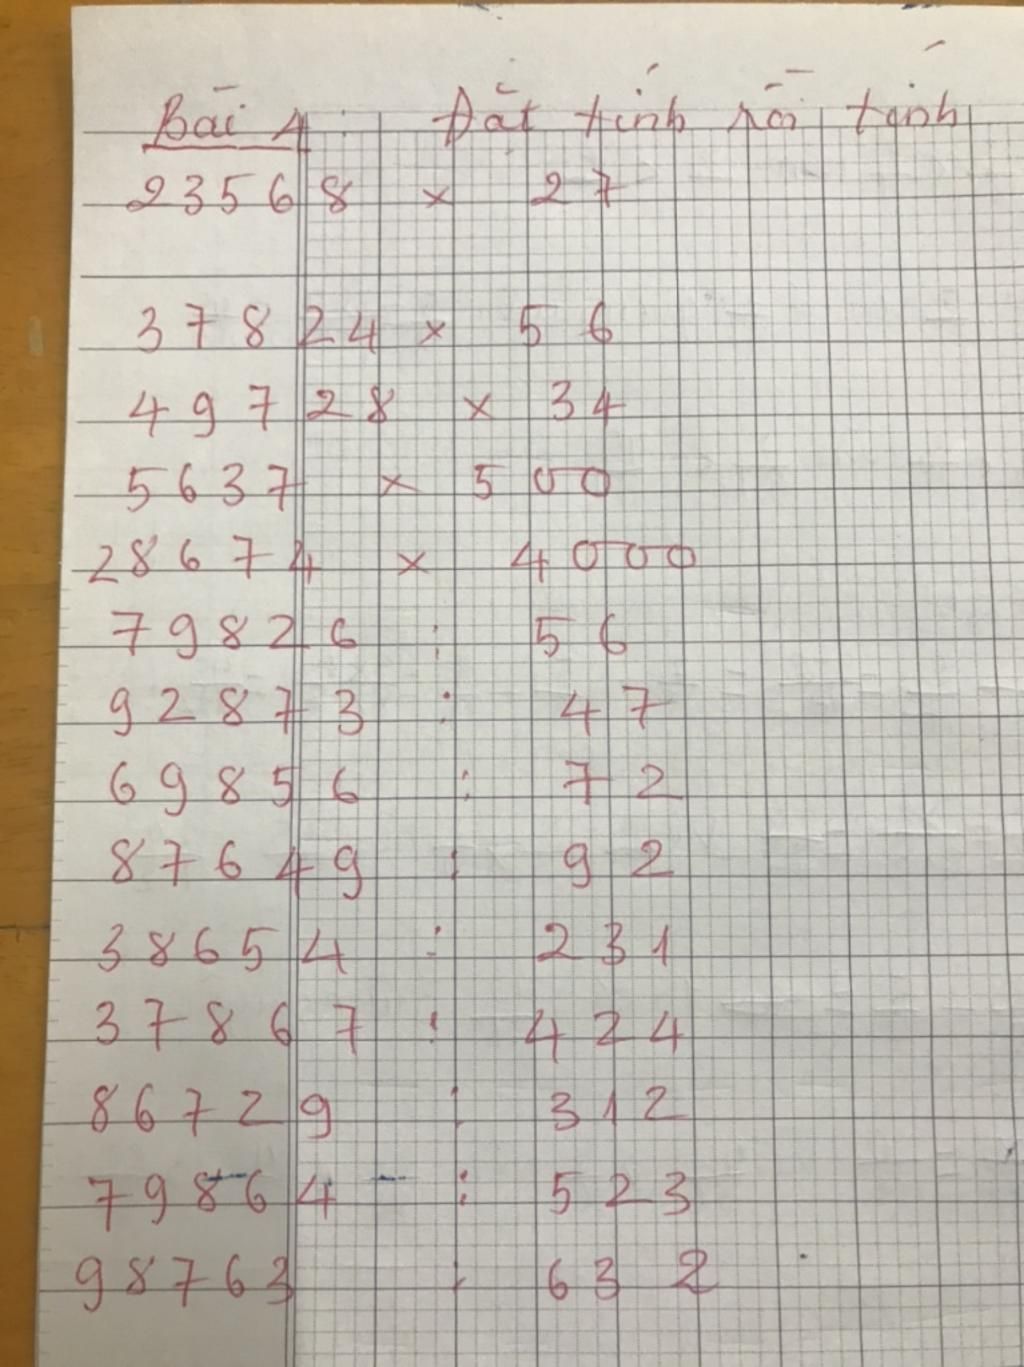 Bài 4: Đặt tính rồi tính
23568 × 27
37824 × 56
49728 × 34
5637 × 500
28674 × 4000
79826 : 56
92873 : 47
69856 : 72
87649 : 92
38654 : 231
37867 : 424
86729 : 312
79864 : 523
98763 : 632